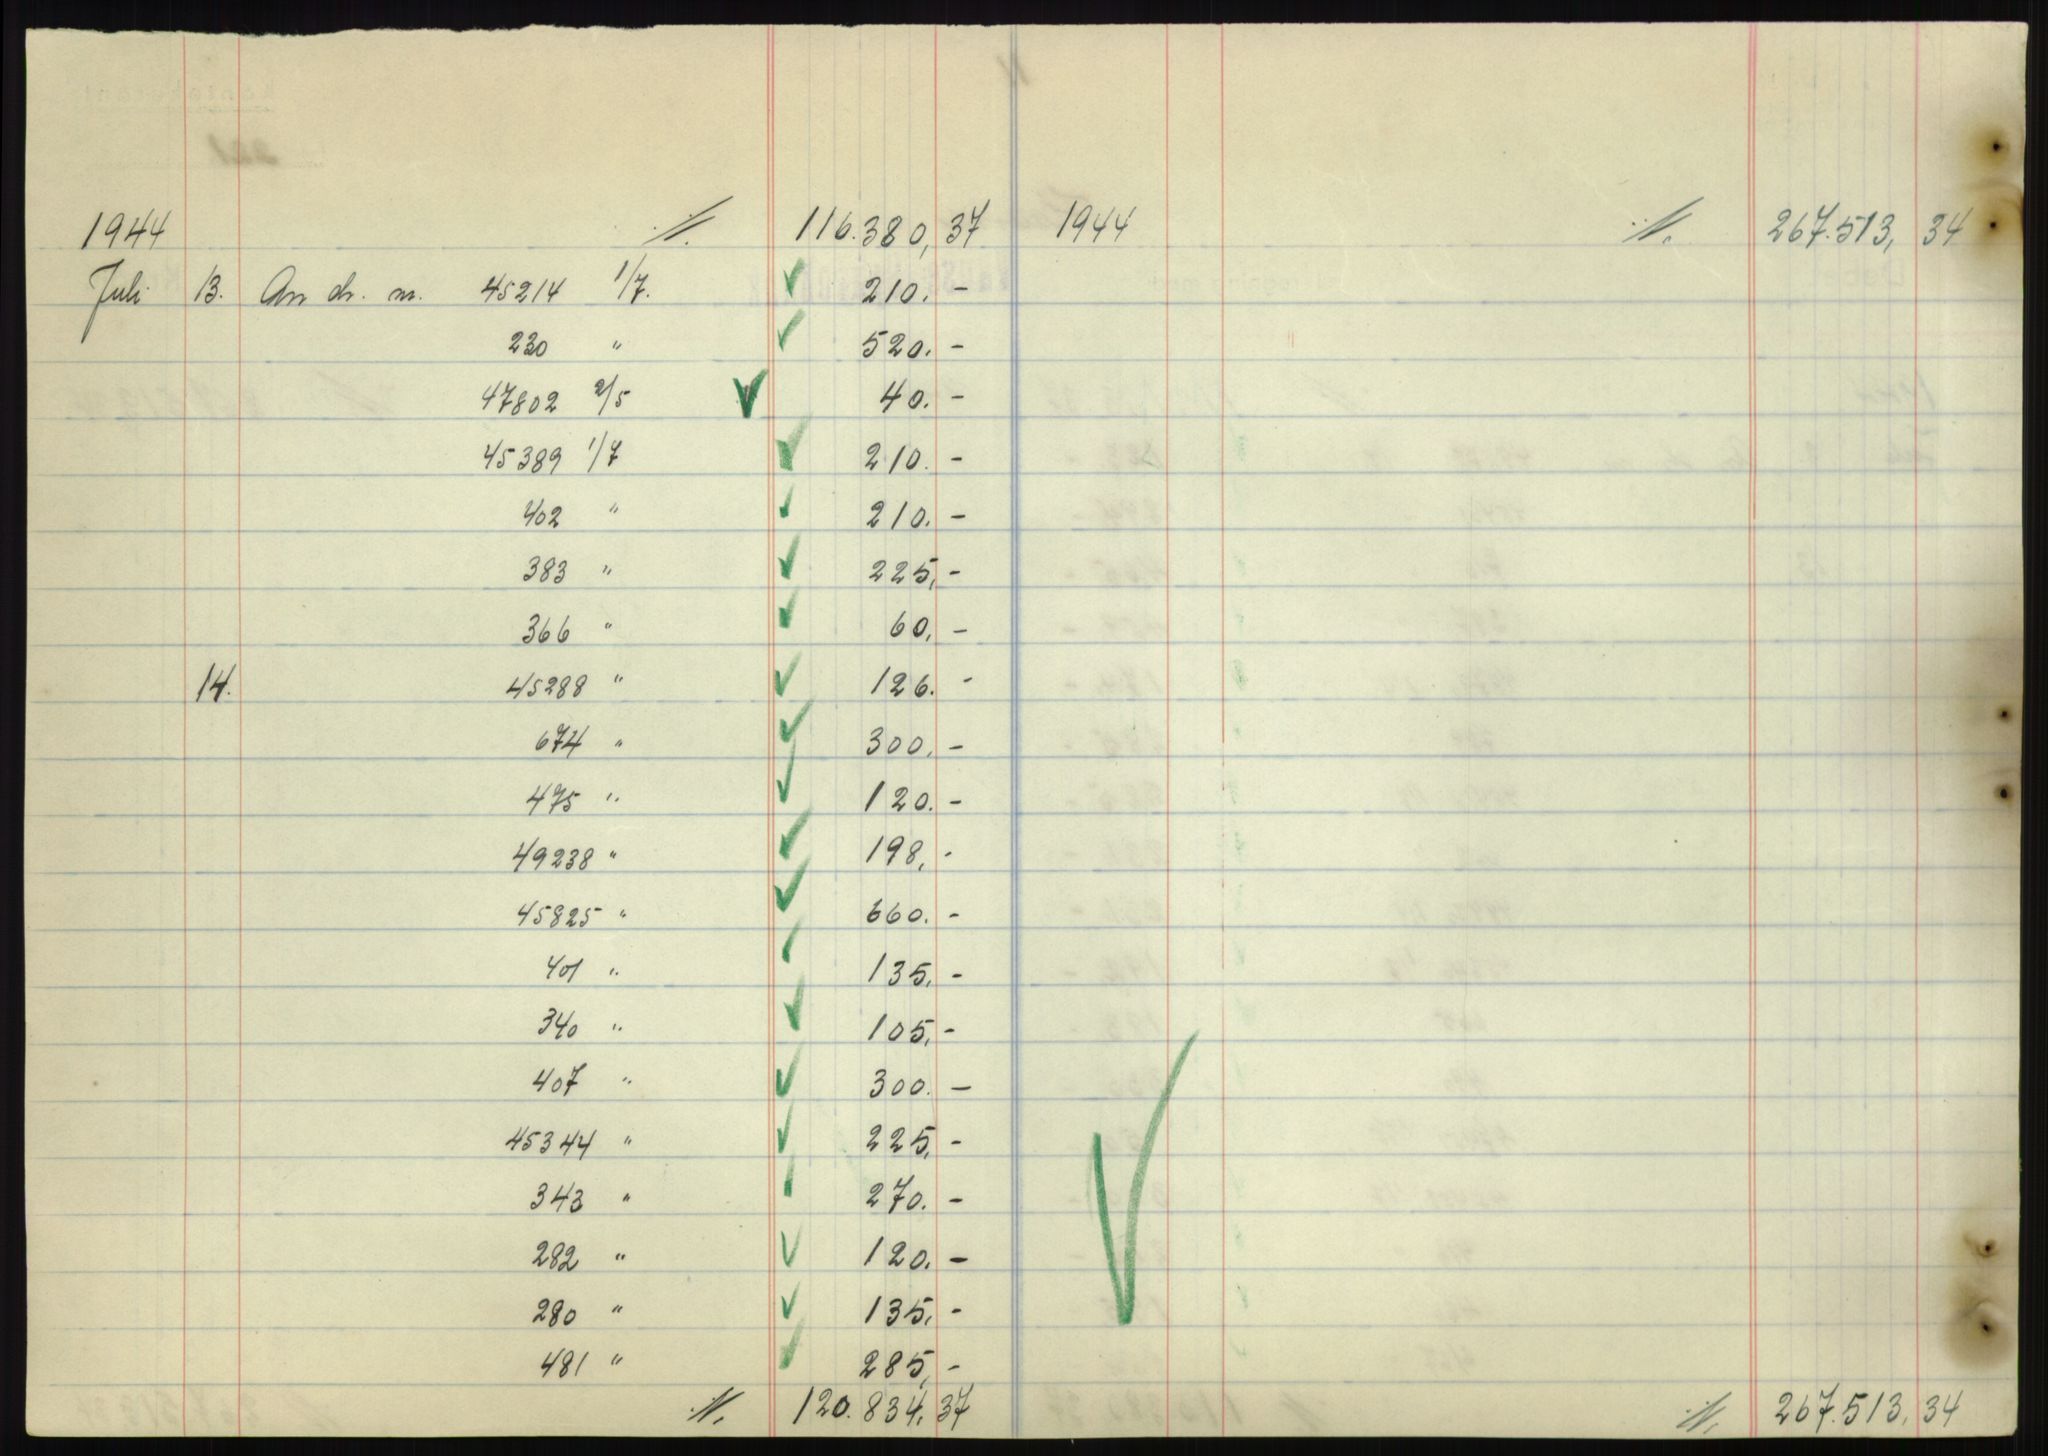 1944 ./. 116.380,37 1944 ./. 267.513,34
Juli 13. An ch. nr. 45214 1/7. 210.-
230 " 520.-
47802 2/5 40.-
45389 1/7 210.-
402 " 210.-
383 " 225,-
366 " 60,-
14. 45288 " 126.-
674 " 300,-
475 " 120.-
49238 " 198,-
45825 " 660.-
401 " 135,-
340 " 105,-
407 " 300.-
45344 " 225,-
343 " 270.-
282 " 120.-
280 " 135,-
481 " 285,-
./. 120.834,37 ./. 267.513,34